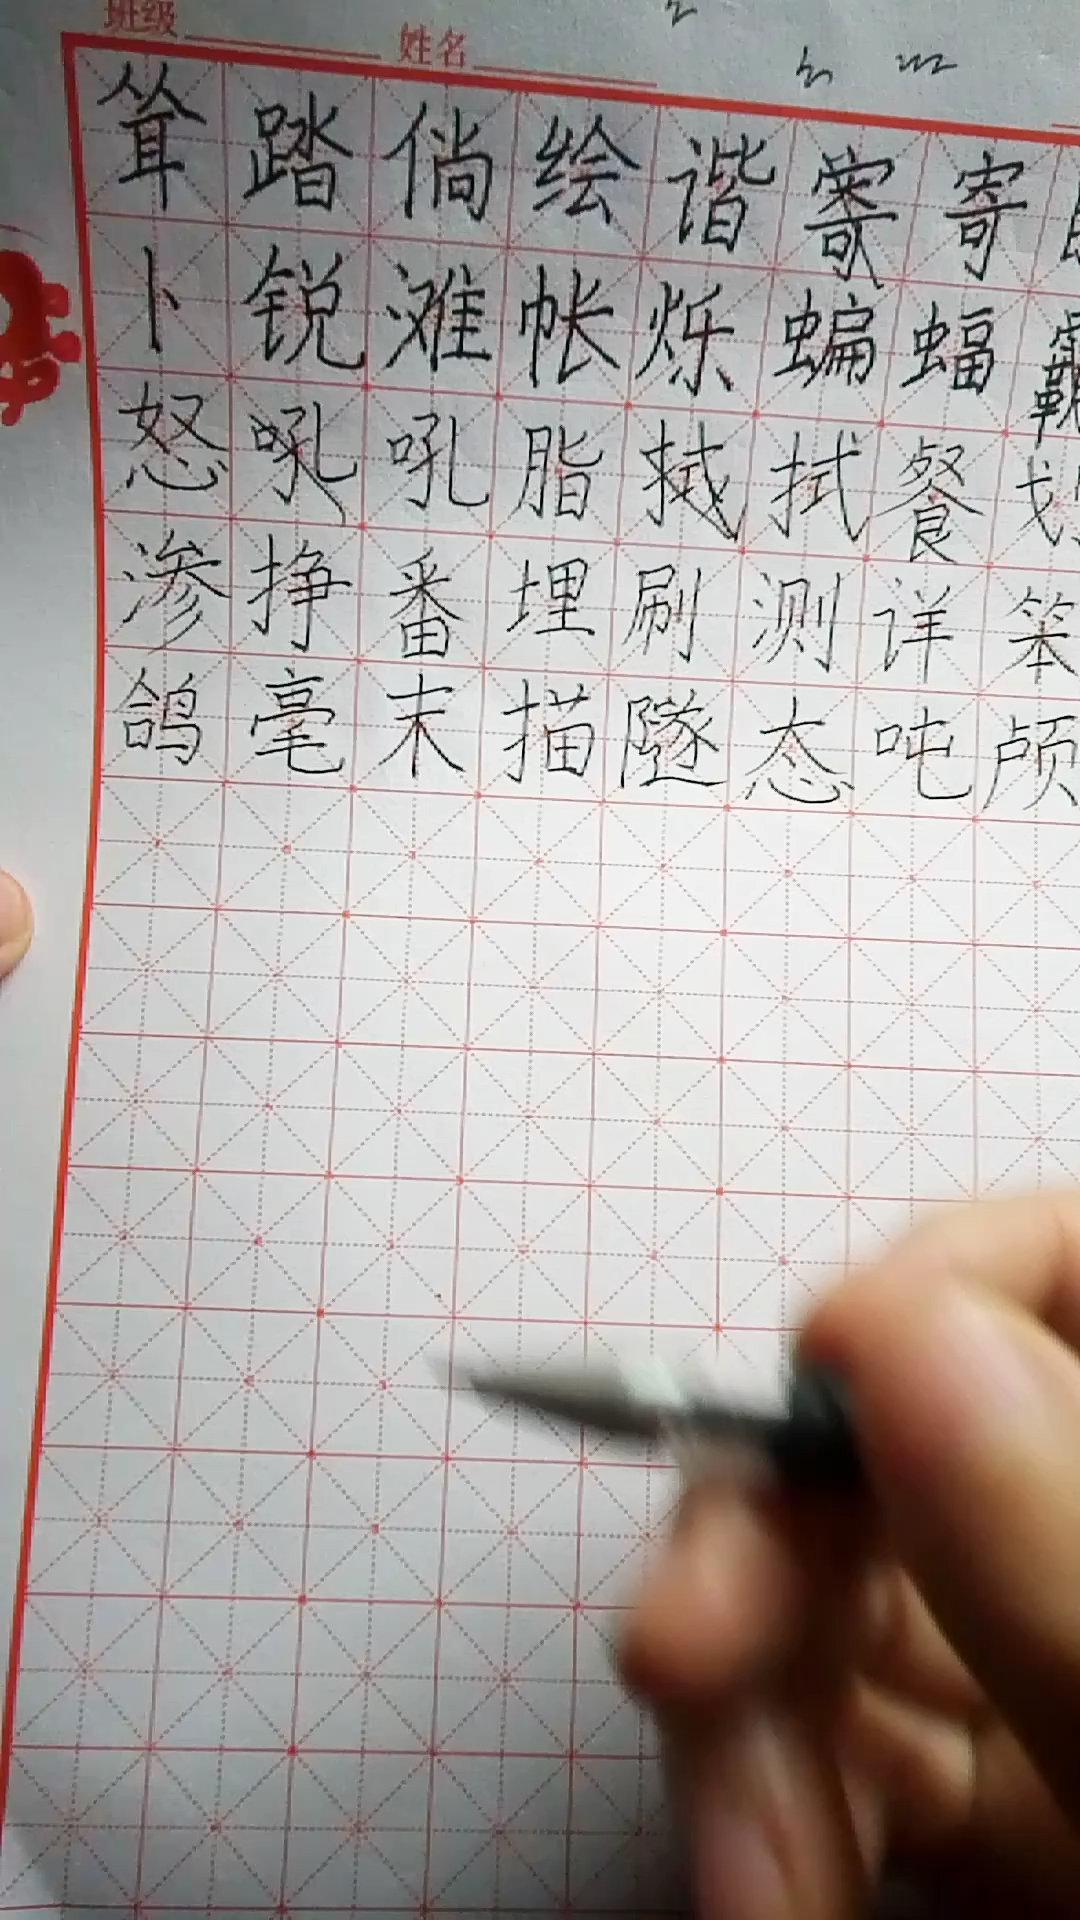 班级 姓名
耸 踏 倘 绘 谐 寄
卜 锐 滩 帐 烁 蝙 蝠 霸
怒 吼 吼 脂 拭 餐 划
渗 挣 番 埋 刷 测 详 笨
鸽 毫 末 描 隧 态 吨 颅